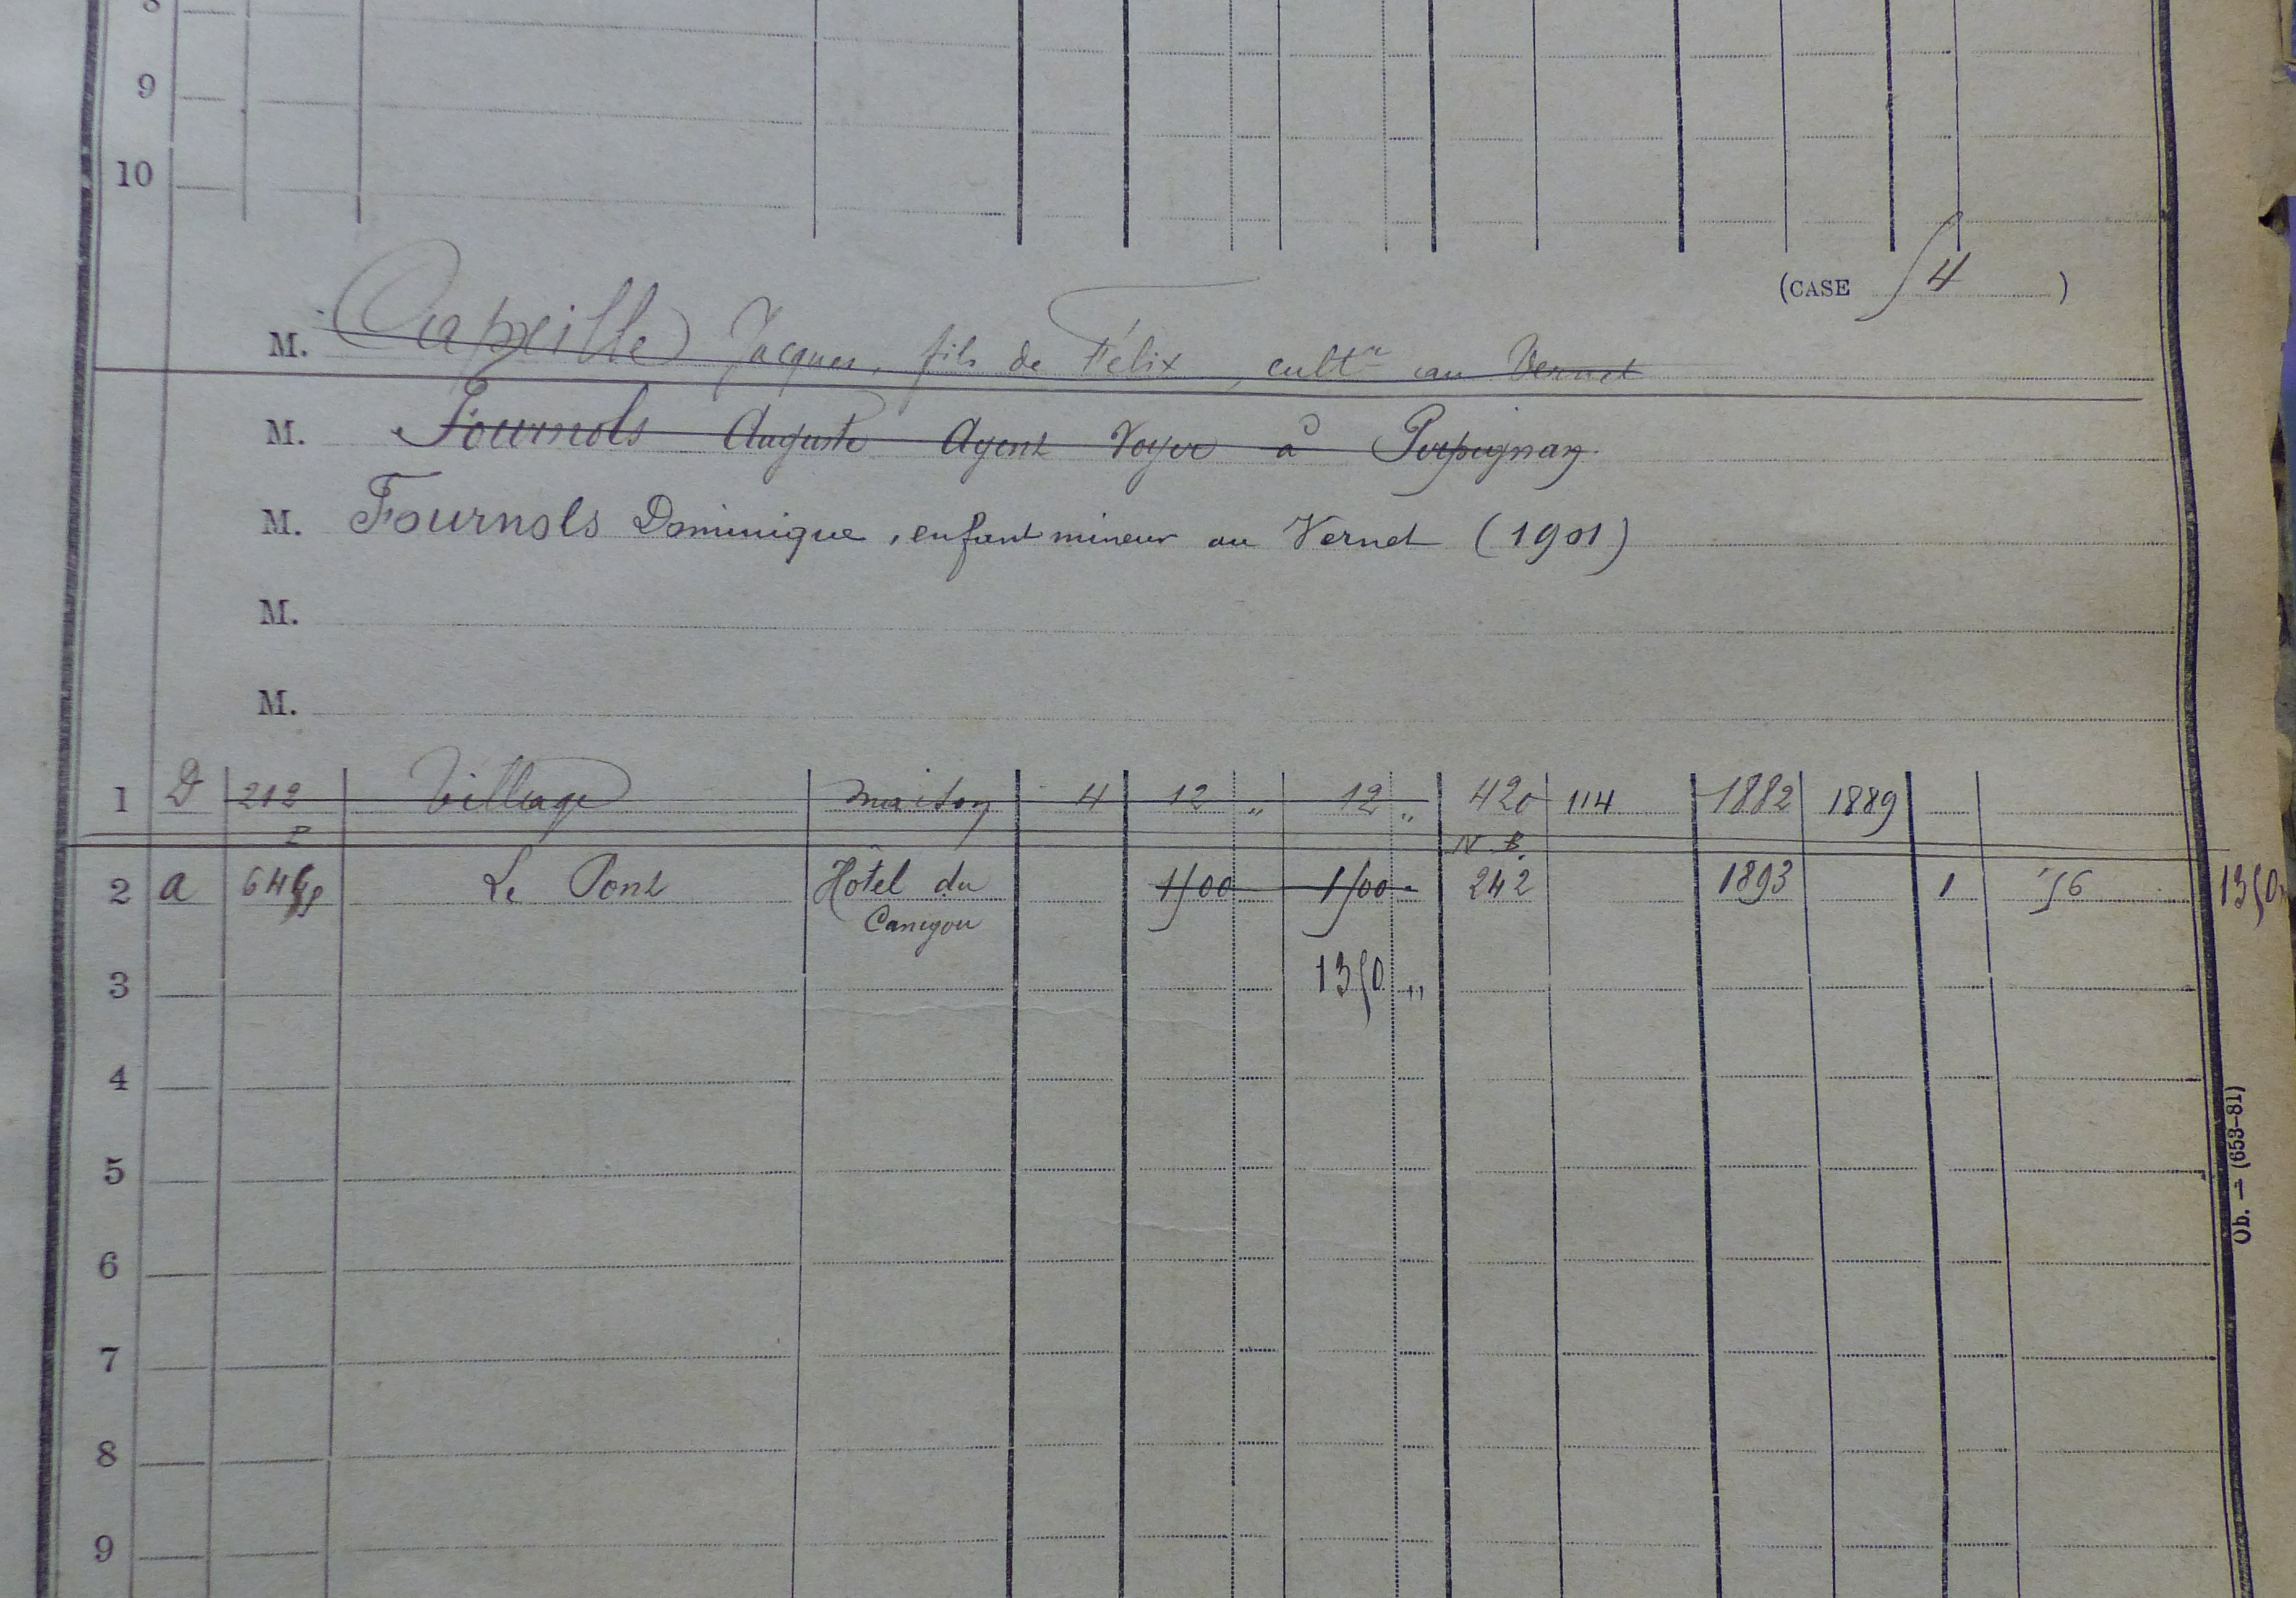 9
10
(CASE 54)
M. Capeille Jacques, fils de Félix, cultr au Vernet
M. Fournols Auguste Agent Voyer à Perpignan
M. Fournols Dominique, enfant mineur au Vernet (1901)
M.
M.
1 D 212 Village maison 4 12 " 12 " 420 114 1882 1889
N. B.
2 a 644 Le Pont Hôtel du 1500 1500 242 1893 1 56 1350
Canigou
3 1350 "
4
5
6
7
8
9
Ob. — (653-81)